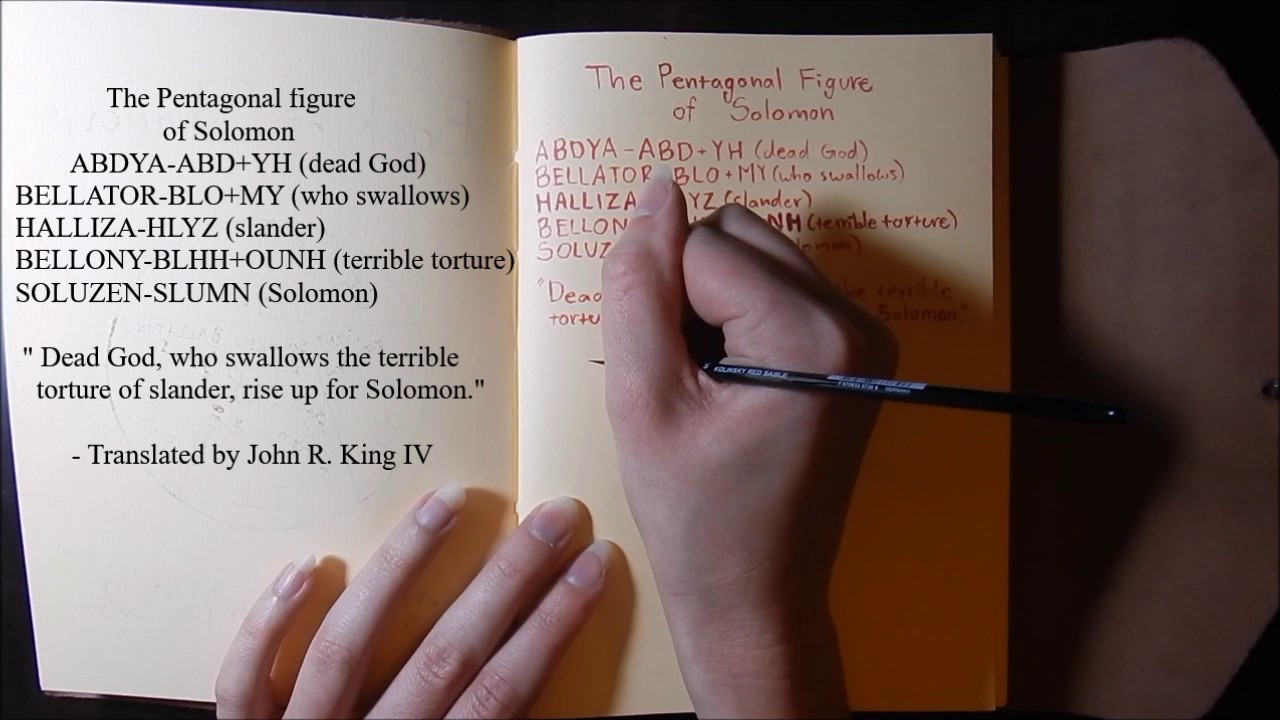 The Pentagonal figure
of Solomon
ABDYA-ABD+YH (dead God)
BELLATOR-BLO+MY (who swallows)
HALLIZA-HLYZ (slander)
BELLONY-BLHH+OUNH (terrible torture)
SOLUZEN-SLUMN (Solomon)
" Dead God, who swallows the terrible
torture of slander, rise up for Solomon."
- Translated by John R. King IV
The Pentagonal Figure
of Solomon
ABDYA-ABD+YH (dead God)
BELLATOR BLO+MY (who swallows)
HALLIZA YZ (slander)
BELLON NH (terrible torture)
SOLUZ lomon)
"Dead the terrible
tortu Solomon."
KOLINSKY RED SABLE